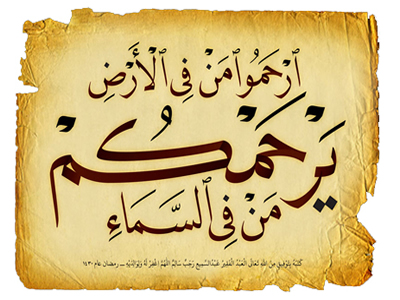 ٱرْحَمُوا۟ مَنْ فِى ٱلْأَرْضِ
يَرْحَمْكُمْ
مَنْ فِى ٱلسَّمَاءِ
كتبه بتوفيق من الله تعالى العبد الفقير عبدالسميع رجب سالم اللهم اغفر له ولوالديه — رمضان عام ١٤٣٠